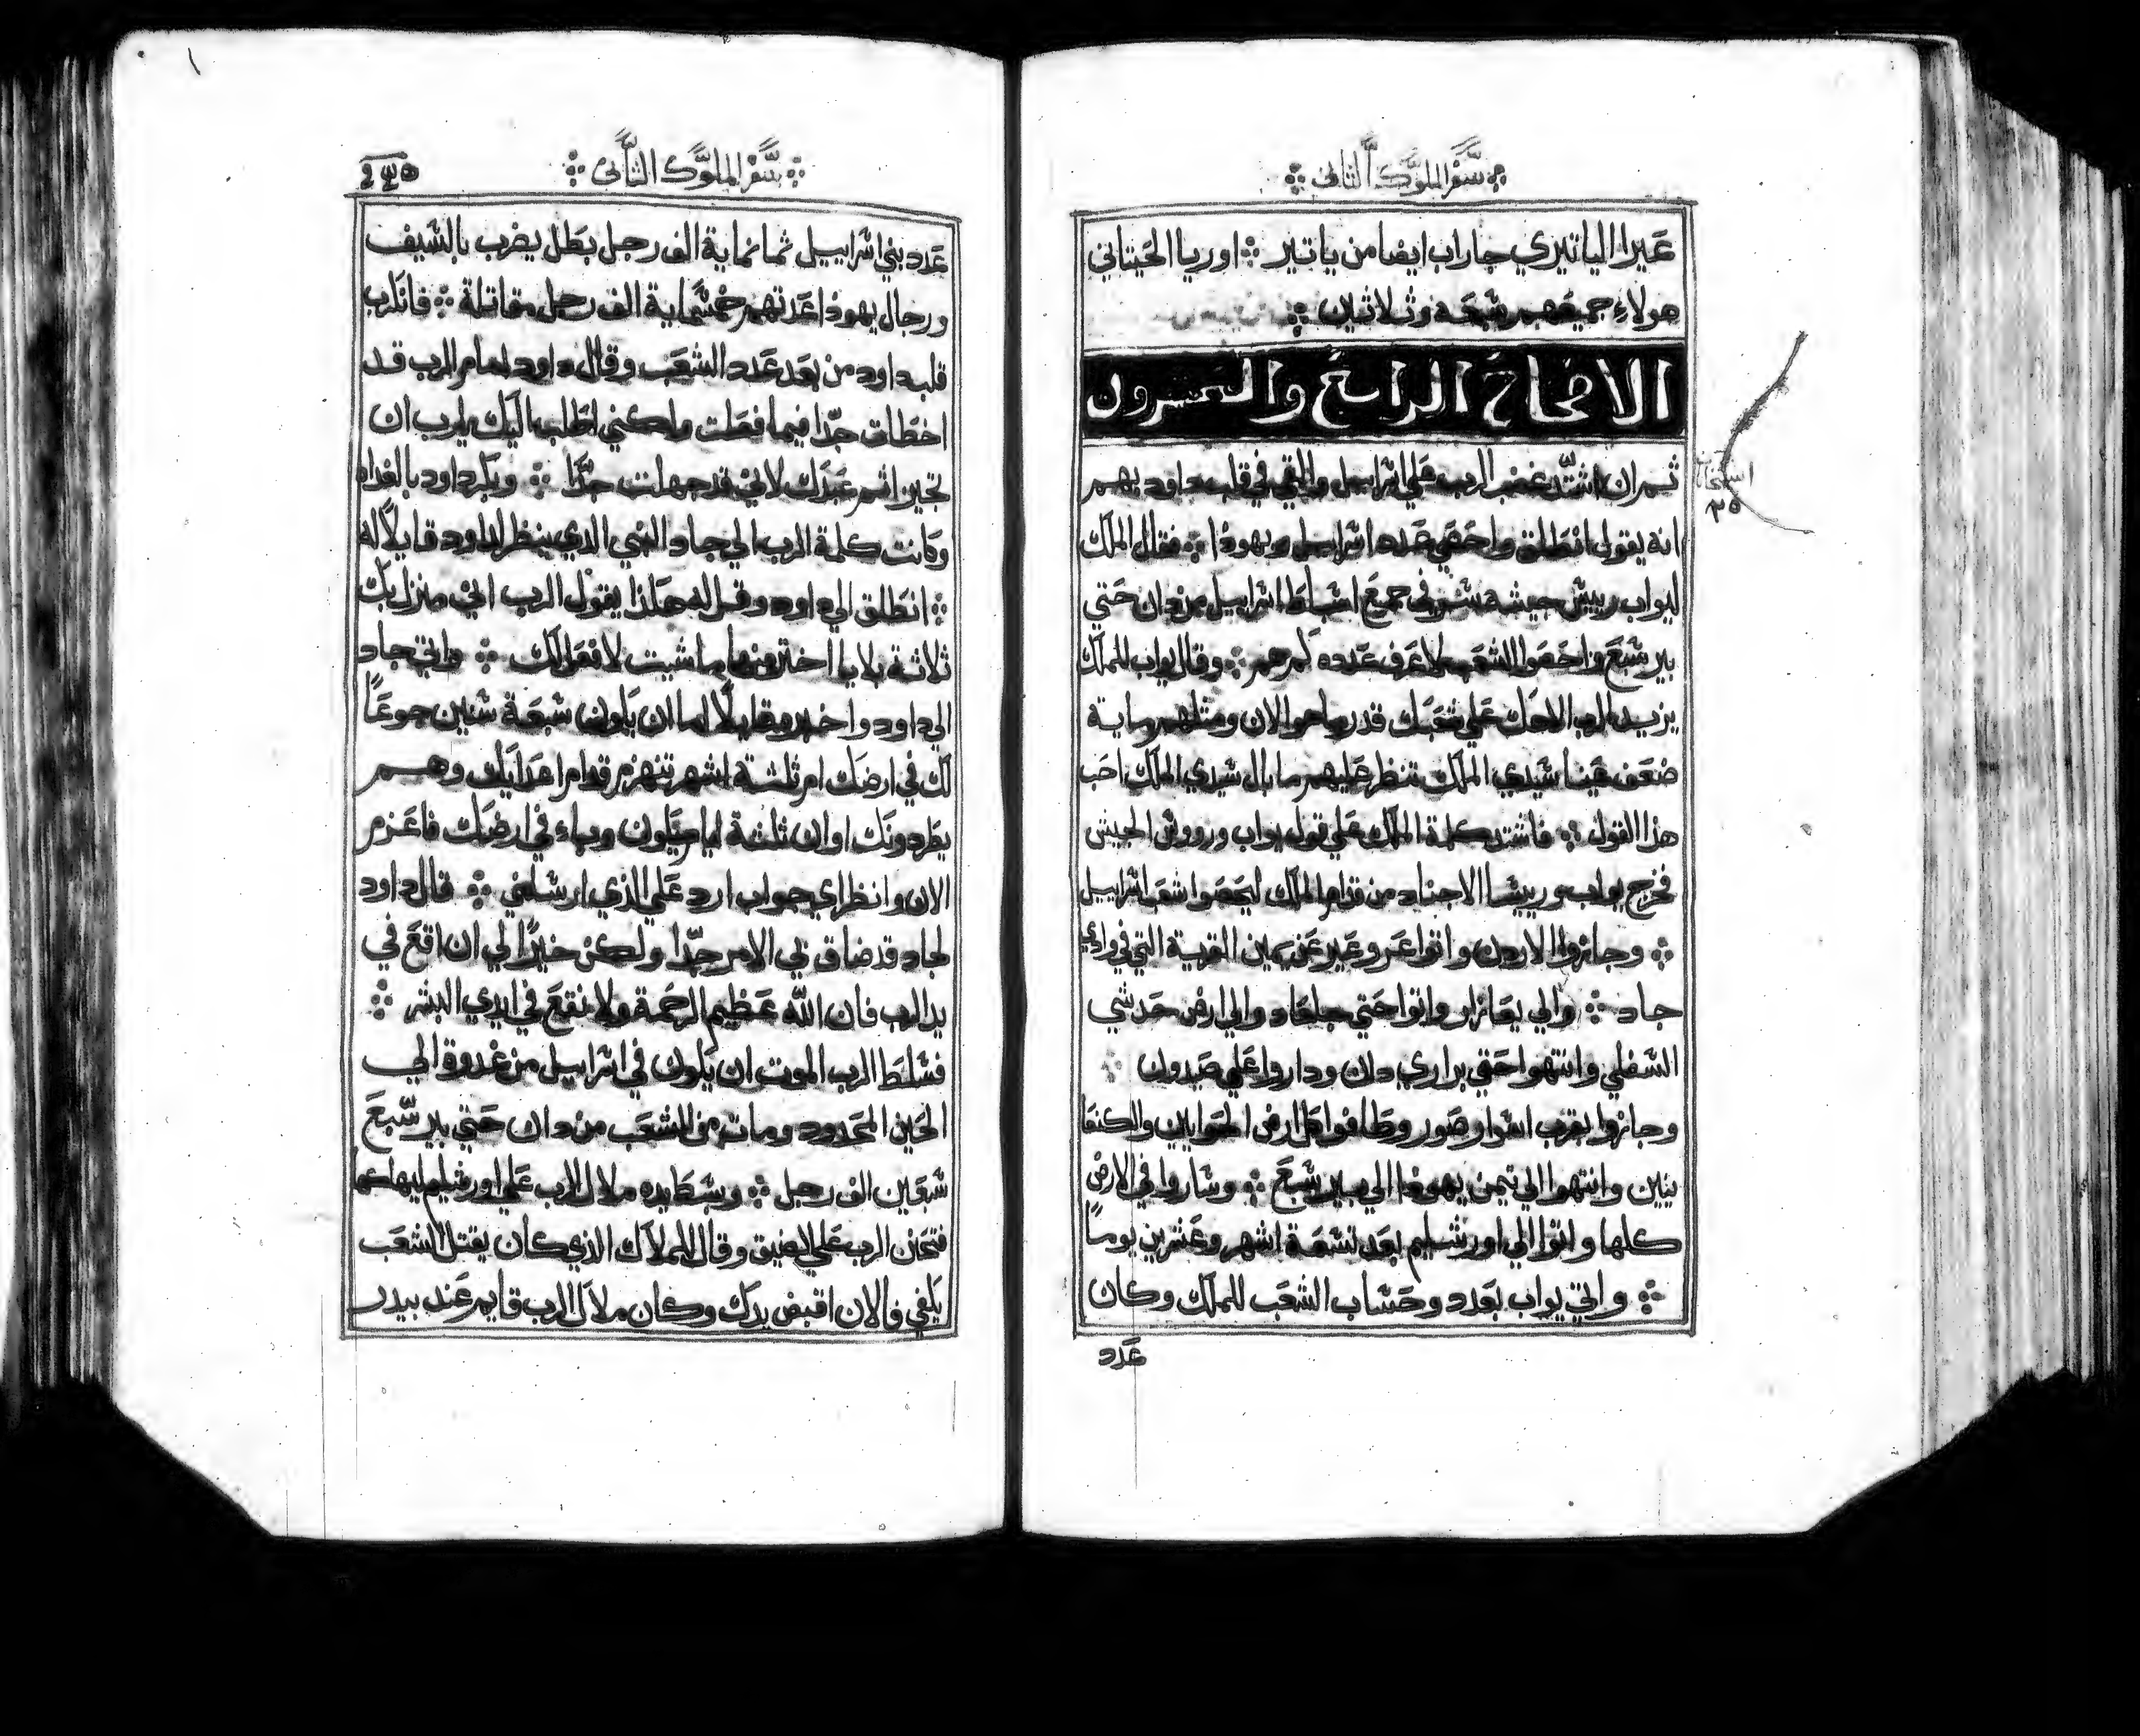 سفر الملوك الثاني
عيرا الياتيري جاراب ايضا من ياتير اوريا الحيتاني
هولاء جميعهم سبعه وثلاثين
الاصحاح الرابع والعشرون
ثم ان اشتد غضب الرب علي اسراييل والقي في قلب داود بهم
انه يقول انطلق واحصي عدد اسراييل ويهوذا فقال الملك
ليواب رييس جيشه سر في جميع اسباط اسراييل من دان حتي
بير سبع واحصوا الشعب لاعرف عدده كم هم وقال يواب للملك
يزيد الرب الاهك علي شعبك قدر ما هو الان ومثلهم ماية
ضعف عينا سيدي الملك تنظر عليهم ما بال سيدي الملك احب
هذا القول فاشتد كلمة الملك علي قول يواب ورووس الجيش
فخرج يواب ورييسا الاجناد من قدام الملك ليحصوا شعب اسراييل
وجازوا الاردن واتوا عروعير عن يمين القرية التي في وادي
جاد والي يعازار واتوا حتي جلعاد والي ارض حدسي
السفلي وانتهوا حتي براري دان وداروا علي صيدون
وجازوا بقرب اسوار صور وطافوا كل ارض الحوايين والكنعا
نيين وانتهوا الي تيمن يهوذا الي بير سبع وساروا في الارض
كلها واتوا الي اورشليم بعد تسعة اشهر وعشرين يوما
واتي يواب بعدد وحساب الشعب للملك وكان
عدد
سفر الملوك الثاني
عدد بني اسراييل ثمانماية الف رجل بطل يضرب بالسيف
ورجال يهوذا عدتهم خمسماية الف رجل مقاتلة
قلب داود من بعد عدد الشعب وقال داود امام الرب قد
اخطات جدا فيما فعلت ولكني اطلب اليك يارب ان
تجيز اثم عبدك لاني قد جهلت جدا وبكر داود بالغداه
وكانت كلمة الرب الي جاد النبي الذي ينظر لداود قايلا له
انطلق الي داود وقل له هكذا يقول الرب اني منزل بك
ثلاثة بلايا اختر منها ما شيت لافعل لك واتي جاد
الي داود واخبره قايلا اما ان يكون سبعة سنين جوعا
لك في ارضك ام ثلثة اشهر تنهزم قدام اعدايك وهم
يطردونك او ان ثلثة ايام يكون وباء في ارضك فاعزم
الان وانظر اي جواب ارد علي الذي ارسلني قال داود
لجاد قد ضاق بي الامر جدا ولكن خيرا لي ان اقع في
يد الرب فان الله عظيم الرحمة ولا نقع في ايدي البشر
فسلط الرب الموت ان يكون في اسراييل من غدوة الي
الحين المحدود ومات من الشعب من دان حتي بير سبع
سبعين الف رجل وبسط يده ملاك الرب علي اورشليم ليهلكها
فتحنن الرب علي الضيق وقال للملاك الذي كان يقتل الشعب
يكفي فالان اقبض يدك وكان ملاك الرب قايم عند بيدر